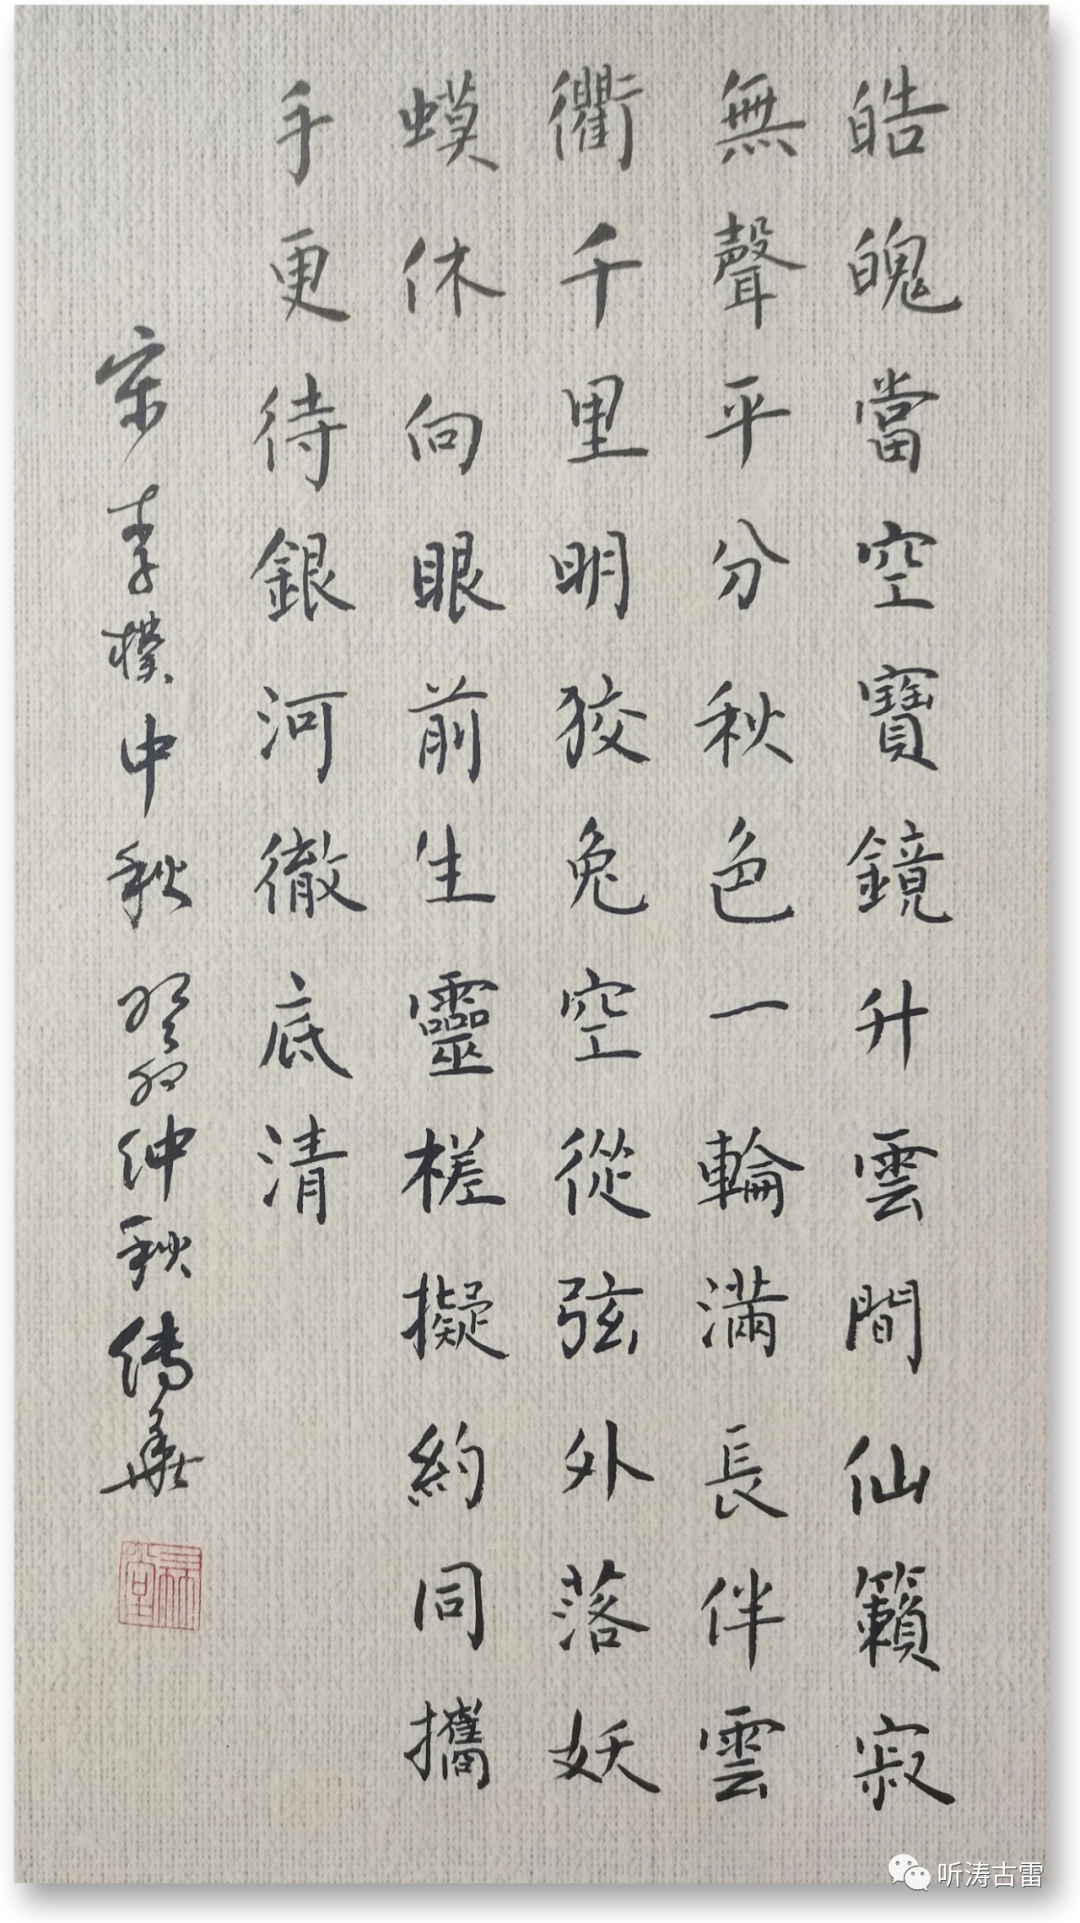 皓魄當空寶鏡升雲間仙籟寂
無聲平分秋色一輪滿長伴雲
衢千里明狡兔空從弦外落妖
蟆休向眼前生靈槎擬約同攜
手更待銀河徹底清
宋李樸中秋癸卯仲秋傳華
听涛古雷